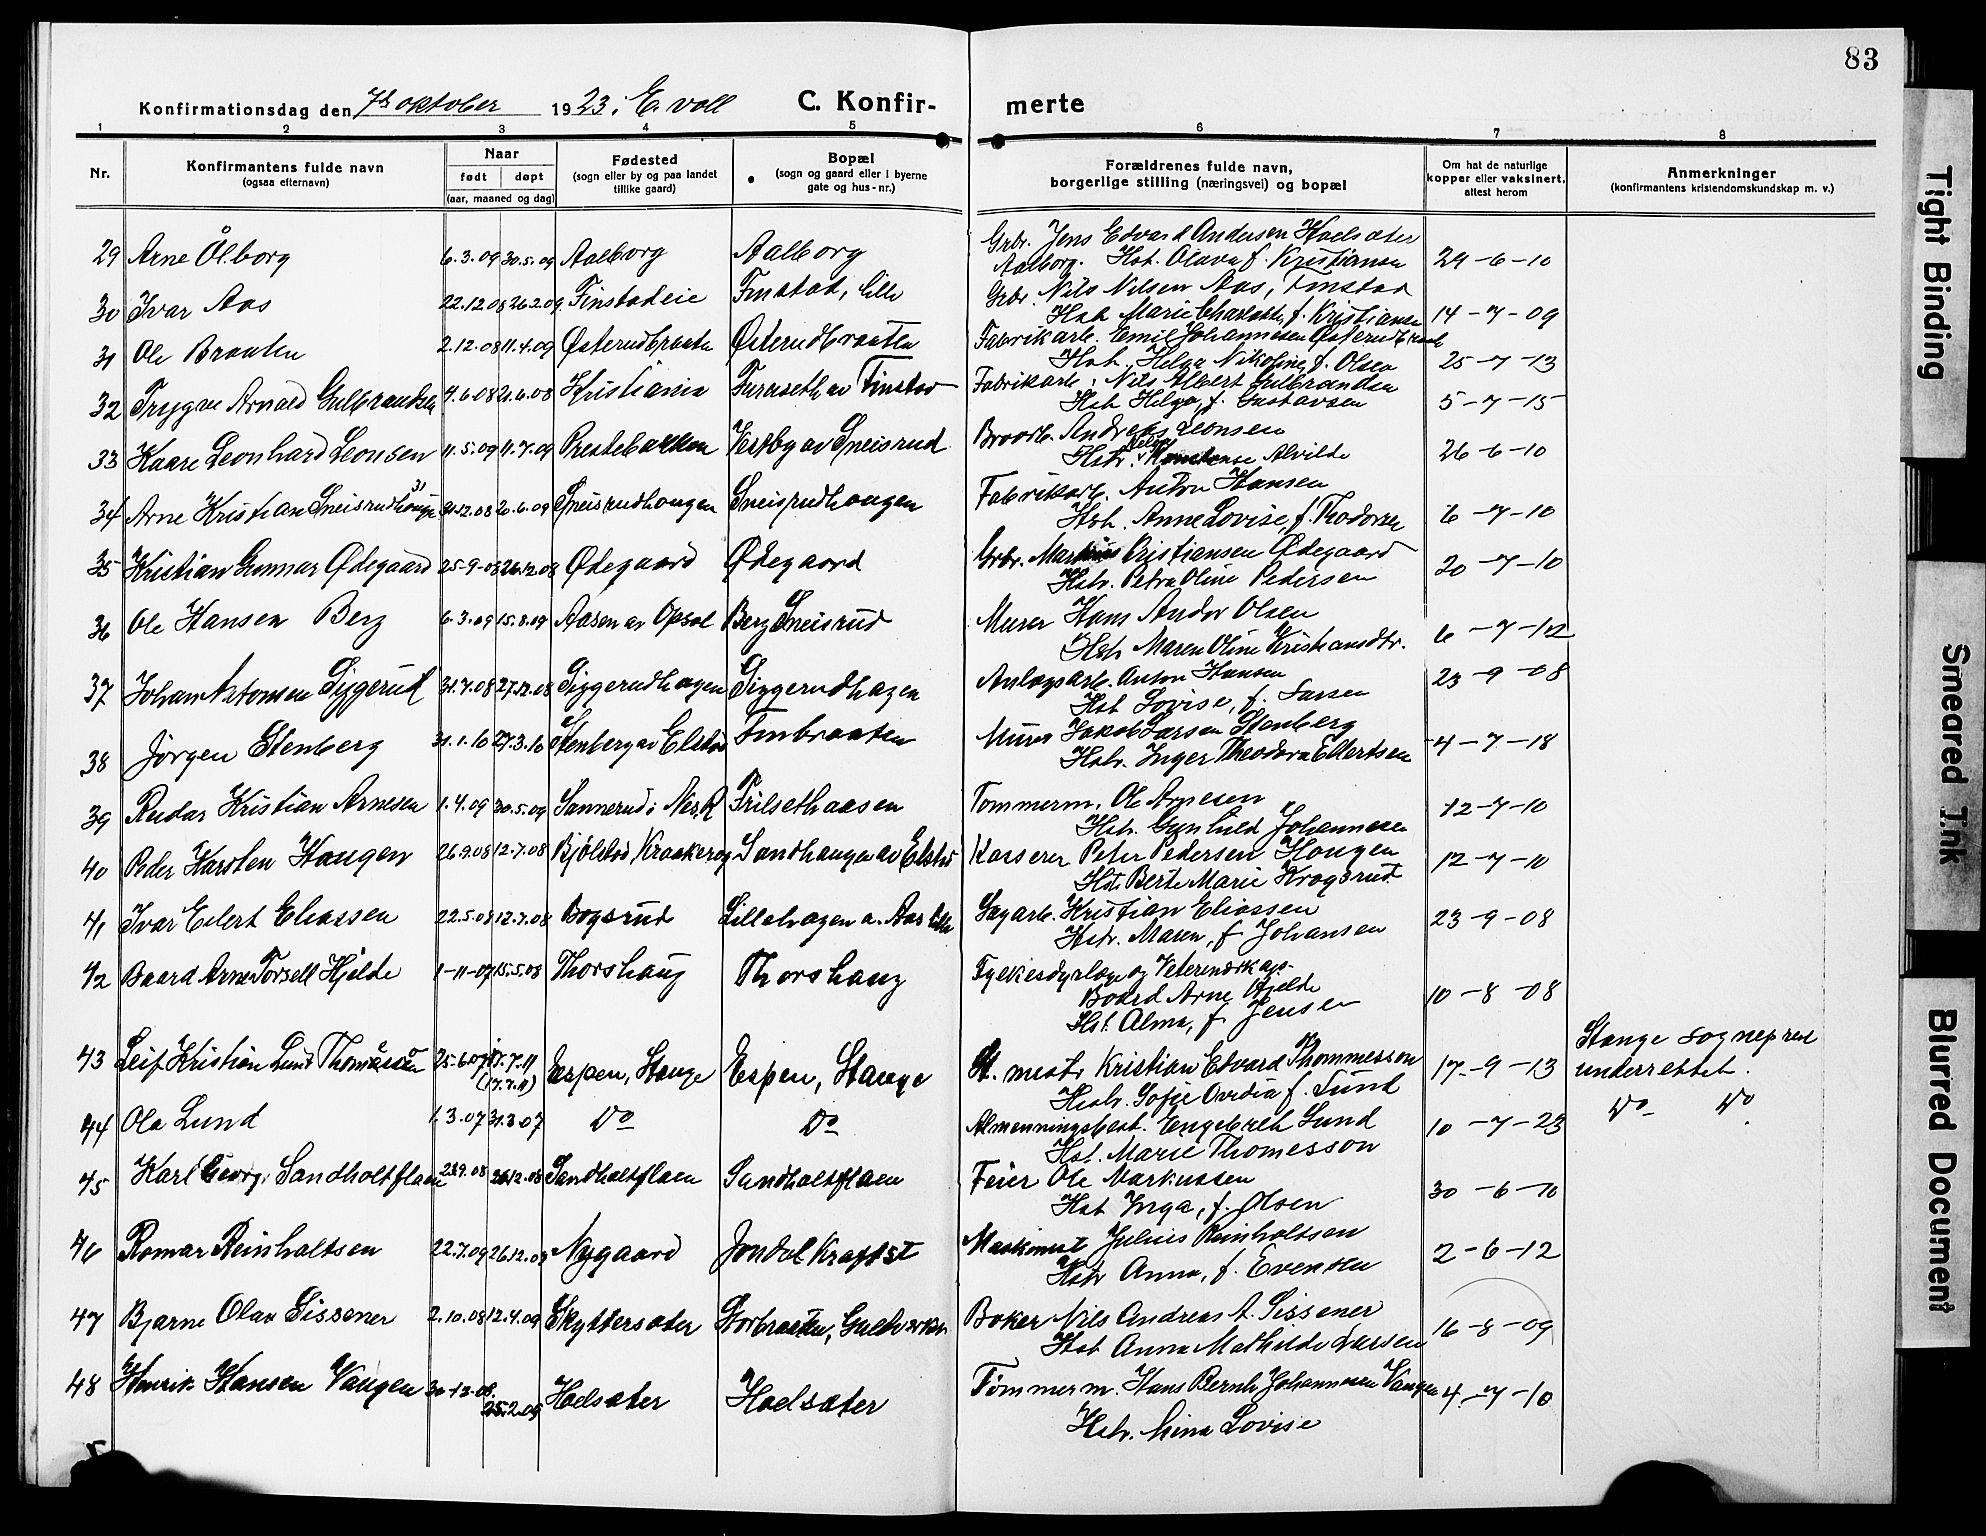 83
Konfirmationsdag den 7de oktober 1923 i E. voll C. Konfir-merte
1 2 3 4 5 6 7 8
Nr. Konfirmantens fulde navn (ogsaa efternavn) Naar født døpt (aar, maaned og dag) Fødested (sogn eller by og paa landet tillike gaard) Bopæl (sogn og gaard eller i byerne gate og hus-nr.) Forældrenes fulde navn, borgerlige stilling (næringsvei) og bopæl Om hat de naturlige kopper eller vaksinert, attest herom Anmerkninger (konfirmantens kristendomskundskap m. v.)
29 Arne Ålborg 6.3.09 30.5.09 Aalborg Aalborg Grbr. Jens Edvard Andersen Haelsæter
Aalborg. Hst. Olava f. Kristiansen 29-6-10
30 Ivar Aas 22.12.08 26.2.09 Finstadeie Finstad, lille Grbr. Nils Nilsen Aas, Finstad
Hst. Marie Charlotte, f. Kristiansen 14-7-09
31 Ole Braaten 2.12.08 11.4.09 Østerudbraaten Østerudbraaten Fabrikarb. Emil Johannesen Østerudbraat
Hst. Helga Nikoline f. Olsen 25-7-13
32 Trygve Arnold Gulbrandsen 4.6.08 21.6.08 Kristiania Furuseth av Finstad Fabrikarb. Nils Albert Gulbrandsen
Hst. Helga, f. Gustavsen 5-7-15
33 Kaare Leonhard Leonsen 11.5.09 11.7.09 Prestebakken Vestby av Sneisrud Andreas Leonsen
Hstr. Alvilde 26-6-10
34 Arne Kristian Sneisrudhaugen 31.12.08 20.6.09 Sneisrudhaugen Sneisrudhaugen Fabrikarb. Anton Hansen
Hst. Anne Lovise, f. Thodorsen 6-7-10
35 Kristian Gunnar Ødegaard 25-9-08 26.12.08 Ødegaard Ødegaard Grbr. Martinus Kristiansen Ødegaard
Hstr. Petra Oline Pedersen 20-7-10
36 Ole Hansen Berg 6.3.09 15.8.09 Aasen av Opsal Berg Sneisrud Murer Hans Andor Olsen
Hstr. Maren Oline Kristiansdtr. 6-7-12
37 Johan Antonsen Siggerud 31.7.08 27.12.08 Siggerudhagen Siggerudhagen Anlægsarb. Anton Hansen
Hst. Lovise, f. Larsen 23-9-08
38 Jørgen Stenberg 31.1.10 27.3.10 Stenberg av Elstad Finbraaten Murer Jakob Larsen Stenberg
Hstr. Inger Theodora Ellertsen 4-7-18
39 Reidar Kristian Arnesen 1.4.09 30.5.09 Sannerud i Nes, R Frilsethaasen Tømmerm. Ole Arnesen
Hstr. Gunhild Johannesen 12-7-10
40 Peder Karsten Haugen 26.9.08 12.7.08 Bjølstad, Kraakerøy Sandhaugen av Elstad Kasserer Peter Pedersen Haugen
Hst. Berte Marie Krogsrud 12-7-10
41 Ivar Eilert Eliassen 22.5.08 12.7.08 Bogsrud Lillehagen a. Aas lille Sagarb. Kristian Eliassen
Hstr. Maren, f. Johansen 23-9-08
42 Baard Arne Torsell Hjelde 1-11-07 15.5.08 Thorshaug Thorshaug Fylkesdyrlæge og Veterinærkap.
Baard Arne Hjelde
Hst. Alma, f. Jensen 10-8-08
43 Leif Kristian Lund Thomessen 25.6.07 17.7.11 (17.7.11) Espen, Stange Espen, Stange St. mestr. Kristian Edvard Thommesson
Hustr. Sofie Ovidia f. Lund 17-9-13 Stange sogneprest
underrettet.
44 Ola Lund 1.3.07 31.3.07 Do Do Almenningsbest. Engebreth Lund
Hst. Marie Thomesson 10-7-23 Do Do
45 Karl Georg Sandholtflaen 23.9.08 26.12.08 Sandholtflaen Sandholtflaen Feier Ole Markussen
Hst. Inga, f. Olsen 30-6-10
46 Romar Reinholtsen 22.7.09 26.12.09 Nygaard Jondal Kraftst Maskinist Julius Reinholtsen
Hstr. Anna, f. Evensen 2-6-12
47 Bjarne Olav Sissener 2.10.08 12.4.09 Skyttersæter Storbraaten, Guldverket Baker Nils Andreas A. Sissener
Hst. Anna Mathilde Larsen 16-8-09
48 Henrik Hansen Vangen 30-12-08. 25.2.09 Hoelsæter Hoelsæter Tømmerm. Hans Bernh. Johannesen Vangen
Hstr. Mina Lovise 4-7-10
Tight Binding
Smeared Ink
Blurred Document